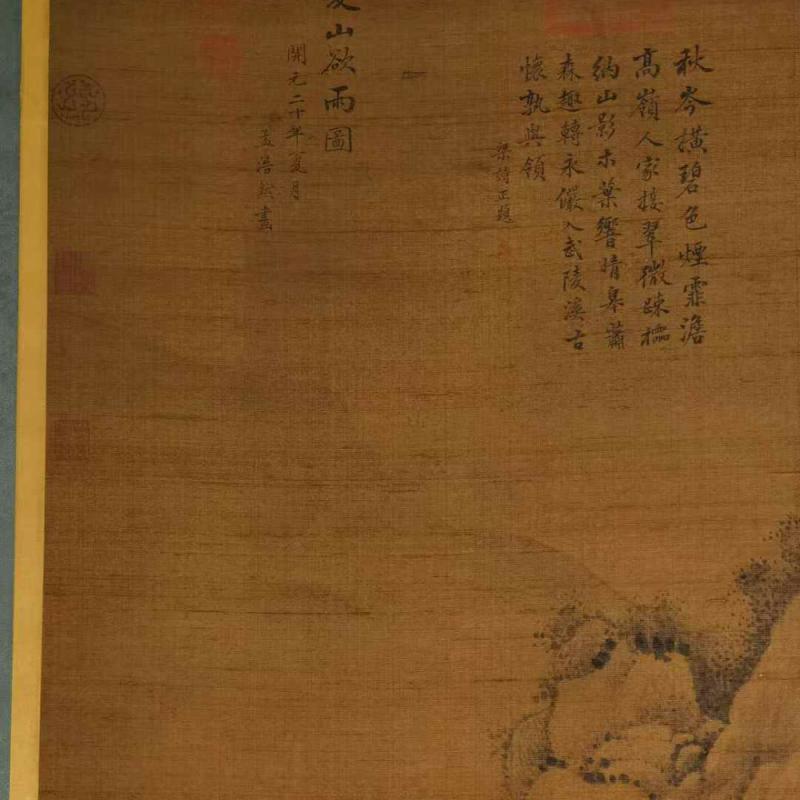 秋岑橫碧色煙霏澹
高嶺人家接翠微疎櫺
納山影木葉響晴皋蕭
森趣轉永儼入武陵溪古
懷孰與領
梁詩正題
夏山欲雨圖
開元二十年夏月
孟浩然畫